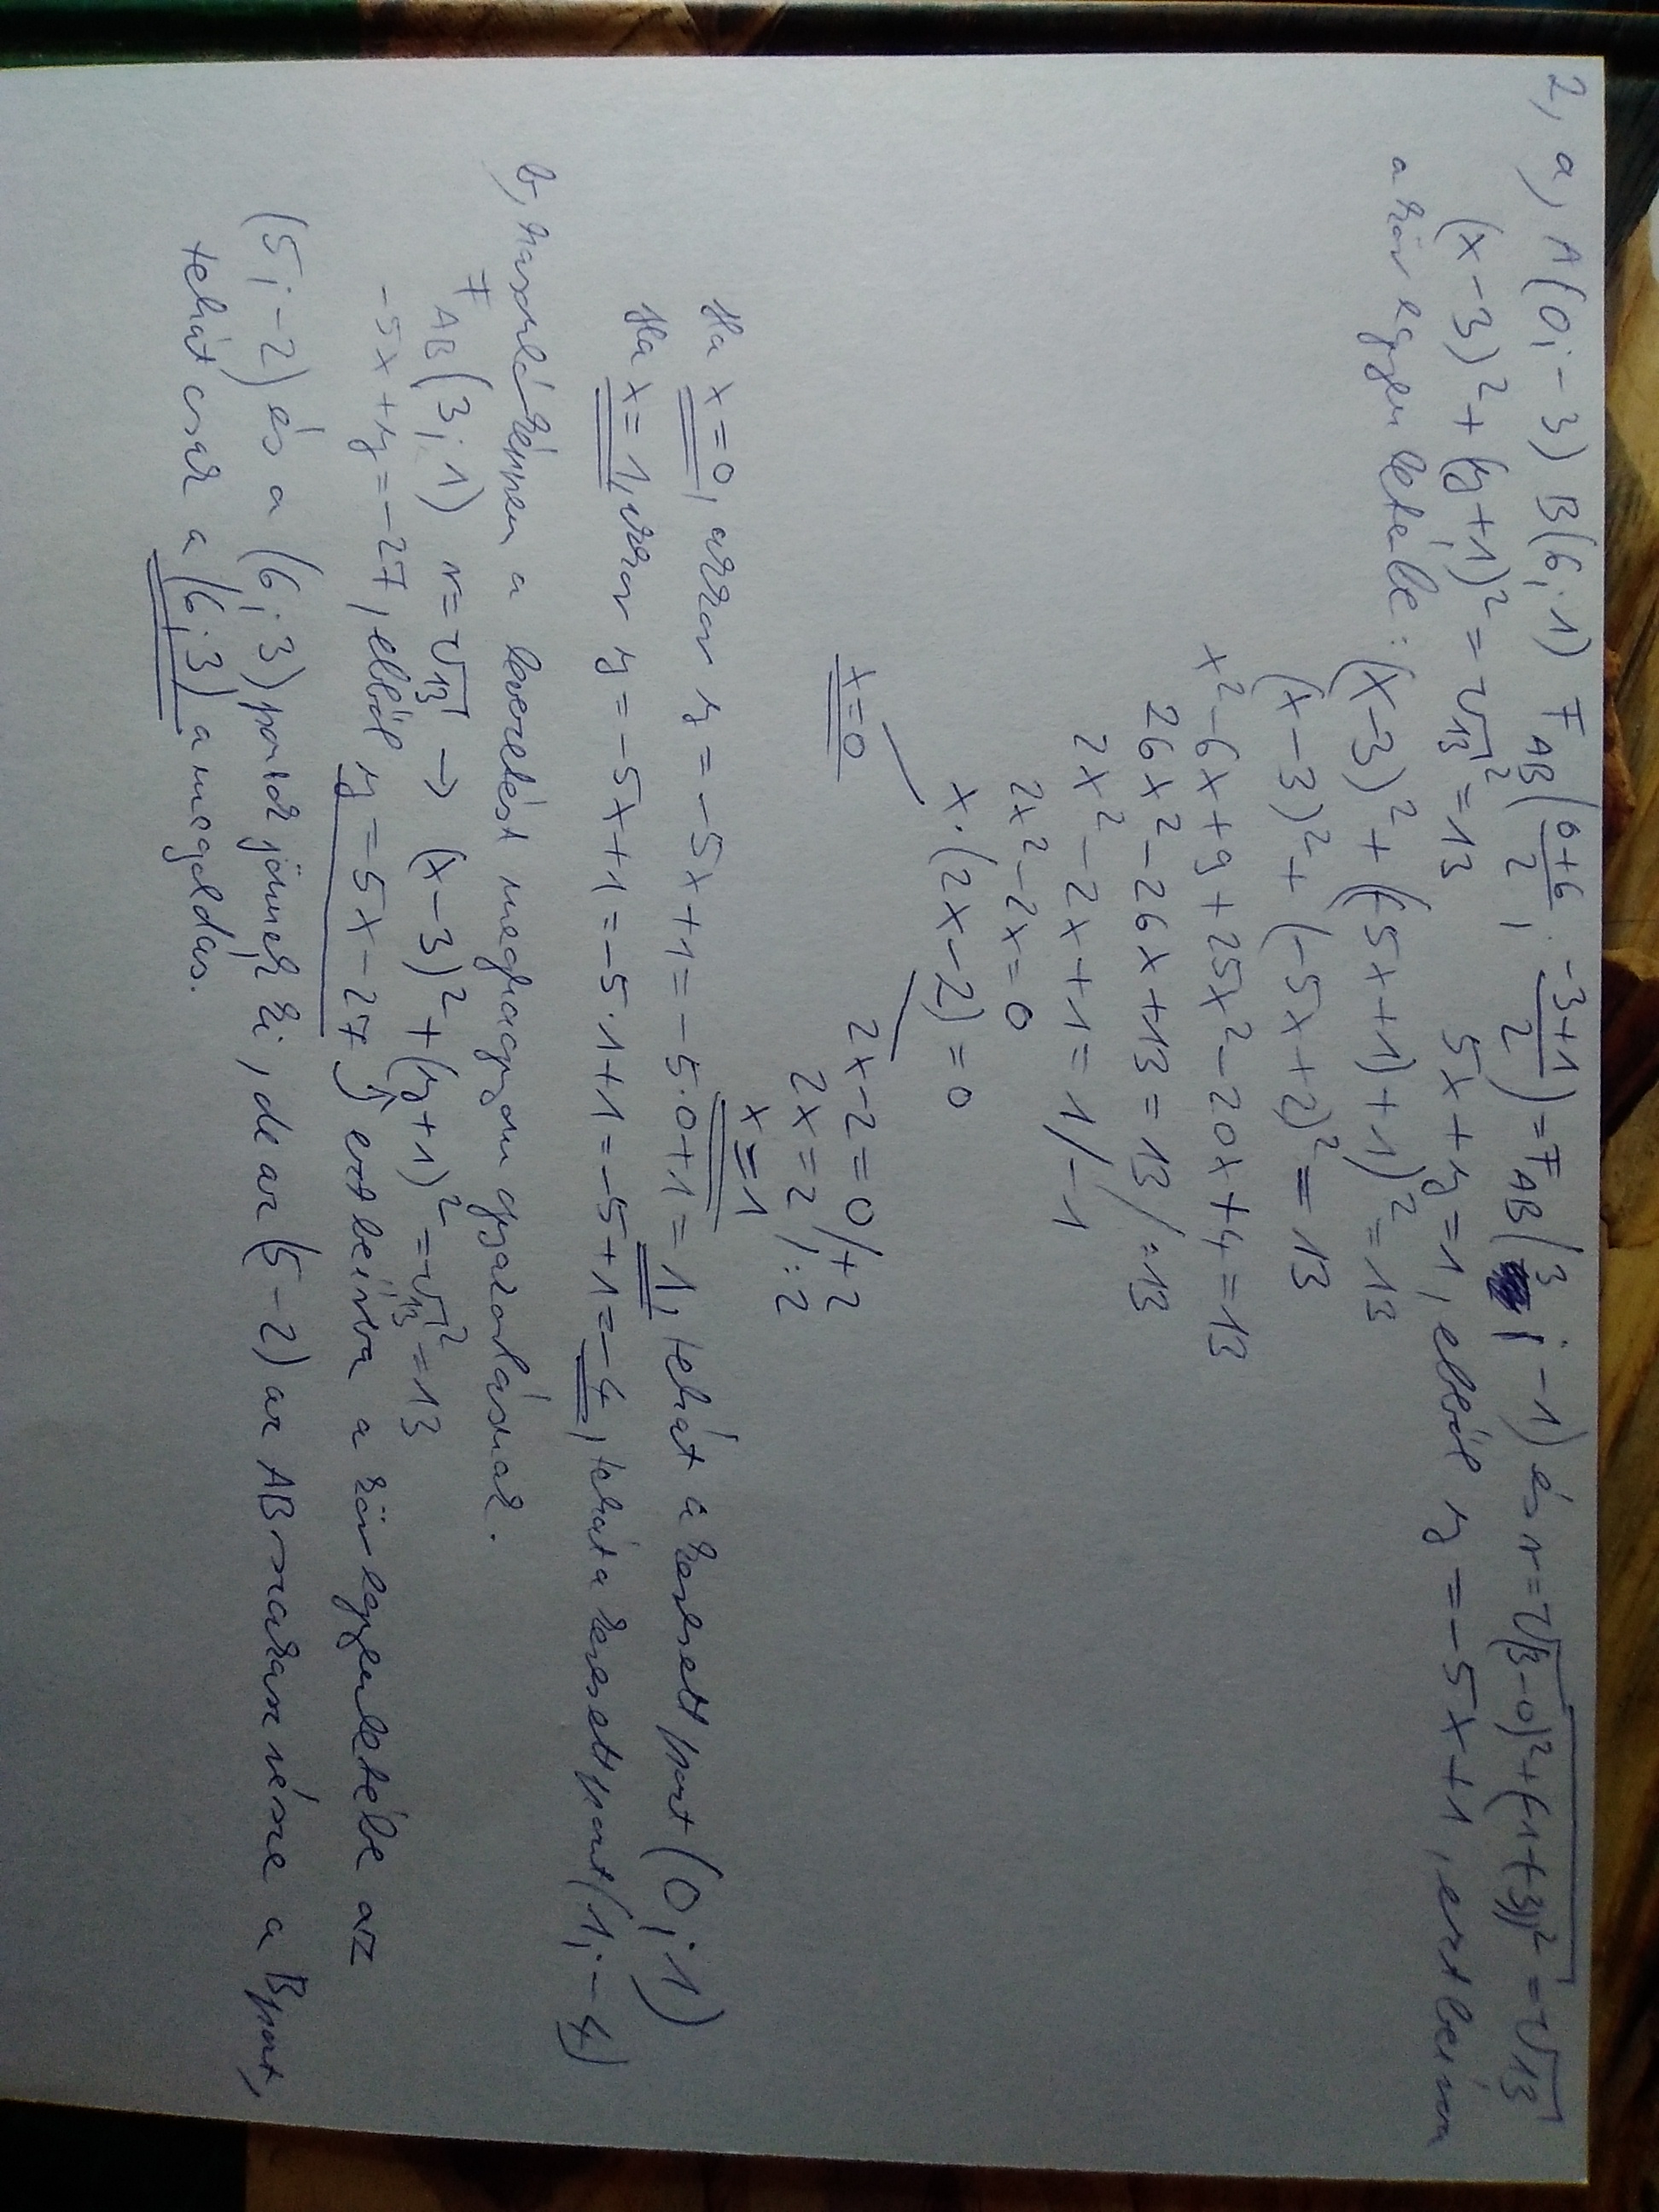 2, a, A(0; -3) B(6; 1) F_AB(0+6/2; -3+1/2) = F_AB(3; -1) és r = √(3-0)²+(-1+3)² = √13
(x-3)² + (y+1)² = √13² = 13 5x+y=1, ebből y = -5x+1, ezt beírva
a kör egyenletébe: (x-3)² + (-5x+1)+1)² = 13
(x-3)² + (-5x+2)² = 13
x² - 6x + 9 + 25x² - 20x + 4 = 13
26x² - 26x + 13 = 13 /:13
2x² - 2x + 1 = 1 /-1
2x² - 2x = 0
x·(2x-2) = 0
x=0 2x-2=0 /+2
2x=2 /:2
x=1
Ha x=0, akkor y = -5x+1 = -5·0+1 = 1, tehát a keresett pont (0; 1)
Ha x=1, akkor y = -5x+1 = -5·1+1 = -5+1 = -4, tehát a keresett pont (1; -4)
b, hasonlóképpen a levezetést meghagyom gyakorlásnak.
F_AB(3; 1) r=√13 → (x-3)² + (y+1)² = √13² = 13
-5x+y=-27, ebből y = 5x-27 ezt beírva a kör egyenletébe az
(5; -2) és a (6; 3) pontok jönnek ki, de az (5 -2) az AB szakasz része a B pont,
tehát csak a (6; 3) a megoldás.